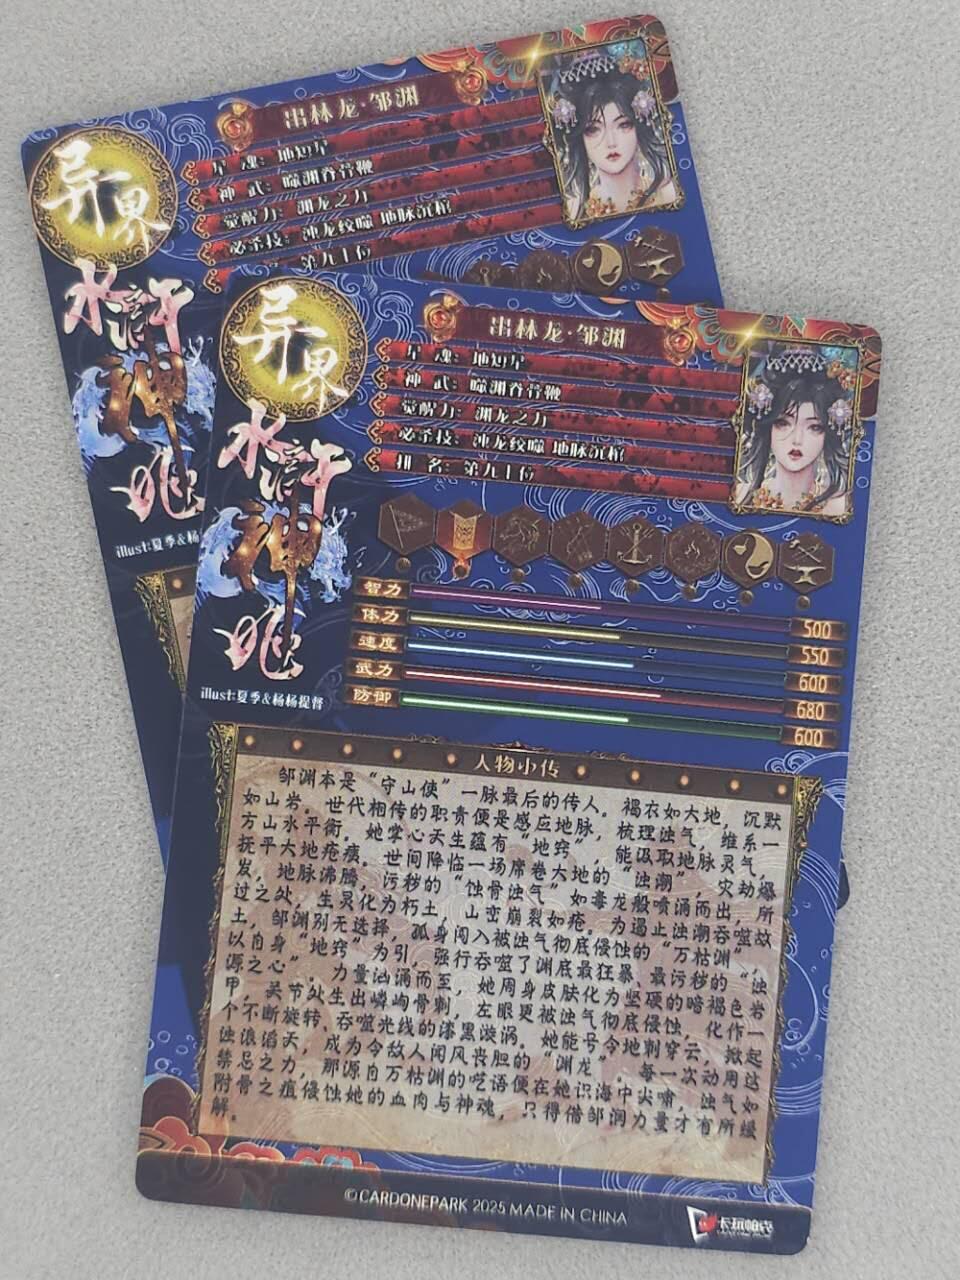 出林龙·邹渊
星 魂：地短星
神 武：噬渊脊骨鞭
觉醒力：渊龙之力
必杀技：浊龙绞噬 地脉沉棺
第九十位
异界
水浒
神
姬
illust:夏季&杨
出林龙·邹渊
星 魂：地短星
神 武：噬渊脊骨鞭
觉醒力：渊龙之力
必杀技：浊龙绞噬 地脉沉棺
排 名：第九十位
异界
水浒
神
姬
illust:夏季&杨杨提督
智力 500
体力 550
速度 600
武力 680
防御 600
人物小传
邹渊本是“守山使”一脉最后的传人。褐衣如大地，沉默
如山岩。世代相传的职责便是感应地脉，梳理浊气，维系一
方山水平衡。她掌心天生蕴有“地窍”，能汲取地脉灵气，
抚平大地疮痍。世间降临一场席卷大地的“浊潮”灾劫爆
发，地脉沸腾，污秽的“蚀骨浊气”如毒龙般喷涌而出，所
过之处，生灵化为朽土，山峦崩裂如疮。为遏止浊潮吞噬故
土，邹渊别无选择，孤身闯入被浊气彻底侵蚀的“万枯渊”，
以自身“地窍”为引，强行吞噬了渊底最狂暴、最污秽的“浊
源之心”。力量汹涌而至，她周身皮肤化为坚硬的暗褐色岩
甲，关节处生出嶙峋骨刺，左眼更被浊气彻底侵蚀、化作一
个不断旋转、吞噬光线的漆黑漩涡。她能号令地刺穿云，掀起
浊浪滔天，成为令敌人闻风丧胆的“渊龙”。每一次动用这
禁忌之力，那源自万枯渊的呓语便在她识海中尖啸，浊气如
附骨之疽侵蚀她的血肉与神魂，只得借邹润力量才有所缓
解。
©CARDONEPARK 2025 MADE IN CHINA
卡玩帕克